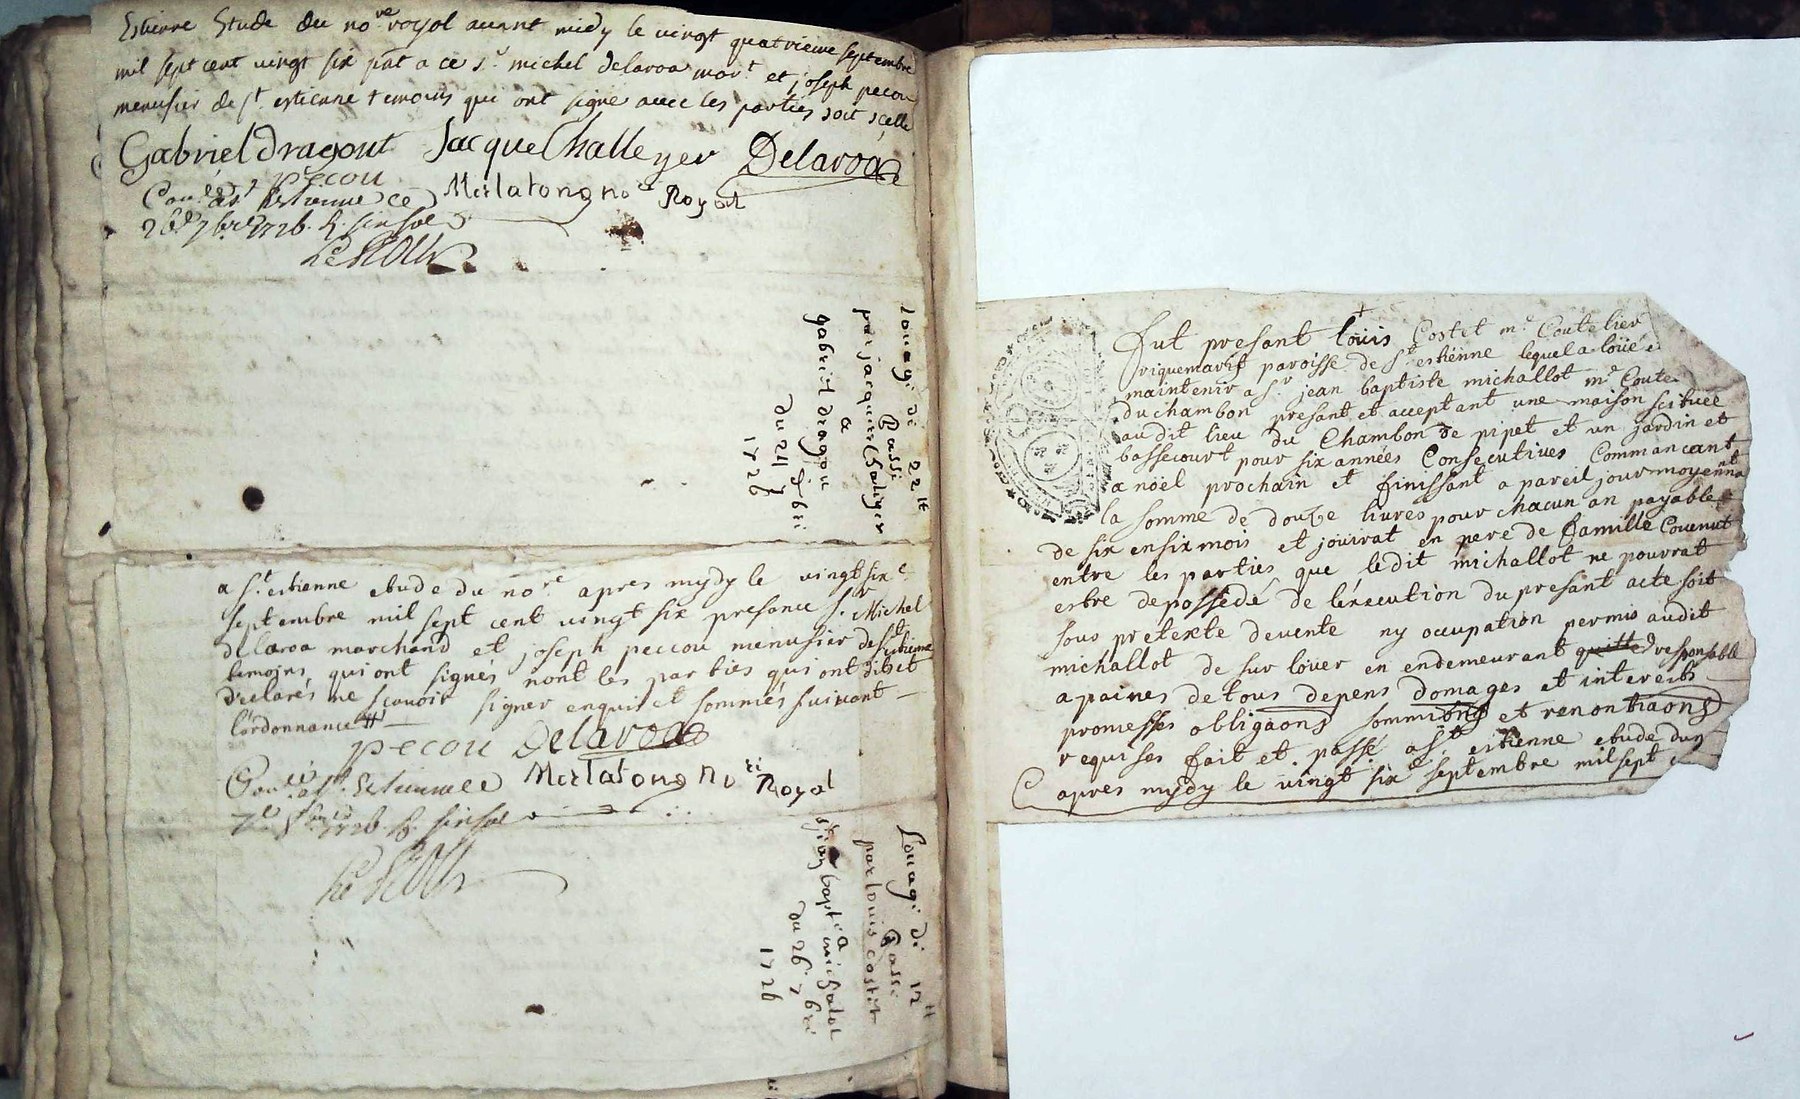 Estienne Etude du no.re royol avant midy le vingt quatrieme septembre
mil sept cent vingt six pnt a ce s.r michel delaroa mar.t et joseph pecou
menusier de s.t estienne temoins qui ont signe avec les parties soit scelle
Gabriel dragout Jacque Challeyer Delaroa
pecou
Con.lé a s.t Estienne ce Merlatong no.re Royol
26.e 7bre 1726. R. six sol
louage de 22 tt
passé
par jacques Chaleyer
a
gabriel dragou
du 24 7bre
1726
a s.t estienne etude du no.re apres mydy le vingt six.e
septembre mil sept cent vingt six presance s.r Michel
delaroa marchand et joseph peccou menusier de s.t estienne
temoins qui ont signés nont les parties qui ont dit et
declarés ne scavoir signer enquis et sommés suivant
l'ordonnance
pecou Delaroa
Con.lé a s.t Estienne ce Merlatong no.re Royal
1726. R. six sol
Louage de 12 tt
passé
par louis costet
a
s.r jean baptte michalot
du 26. 7bre
1726
fut presant loüis Costet m.e Coutelier
riquemarif paroisse de s.t estiënne lequel a loüé e
maintenir a s.r jean baptiste michallot m.e Coute
du chambon presant et acceptant une maison scituée
au dit lieu du Chambon de pipet et un jardin et
bassecourt pour six années Consecutives Commancant
a noël prochain et finissant a pareil jour moyenna
la somme de douze livres pour chacun an payable
de six en six mois et jouirat en pere de famille Convenut
entre les parties que ledit michallot ne pouvrat
estre depossedé de l'exsecution du presant acte soit
sous pretexte de vente ny occupation permis audit
michallot de sur louer en endemeurant quitte responsable
a paines de tous depens domages et interests
promesses obligaons sommions et renontiaons
requises fait et passé a s.t estienne etude dun
apres mydy le vingt six.e septembre mil sept c